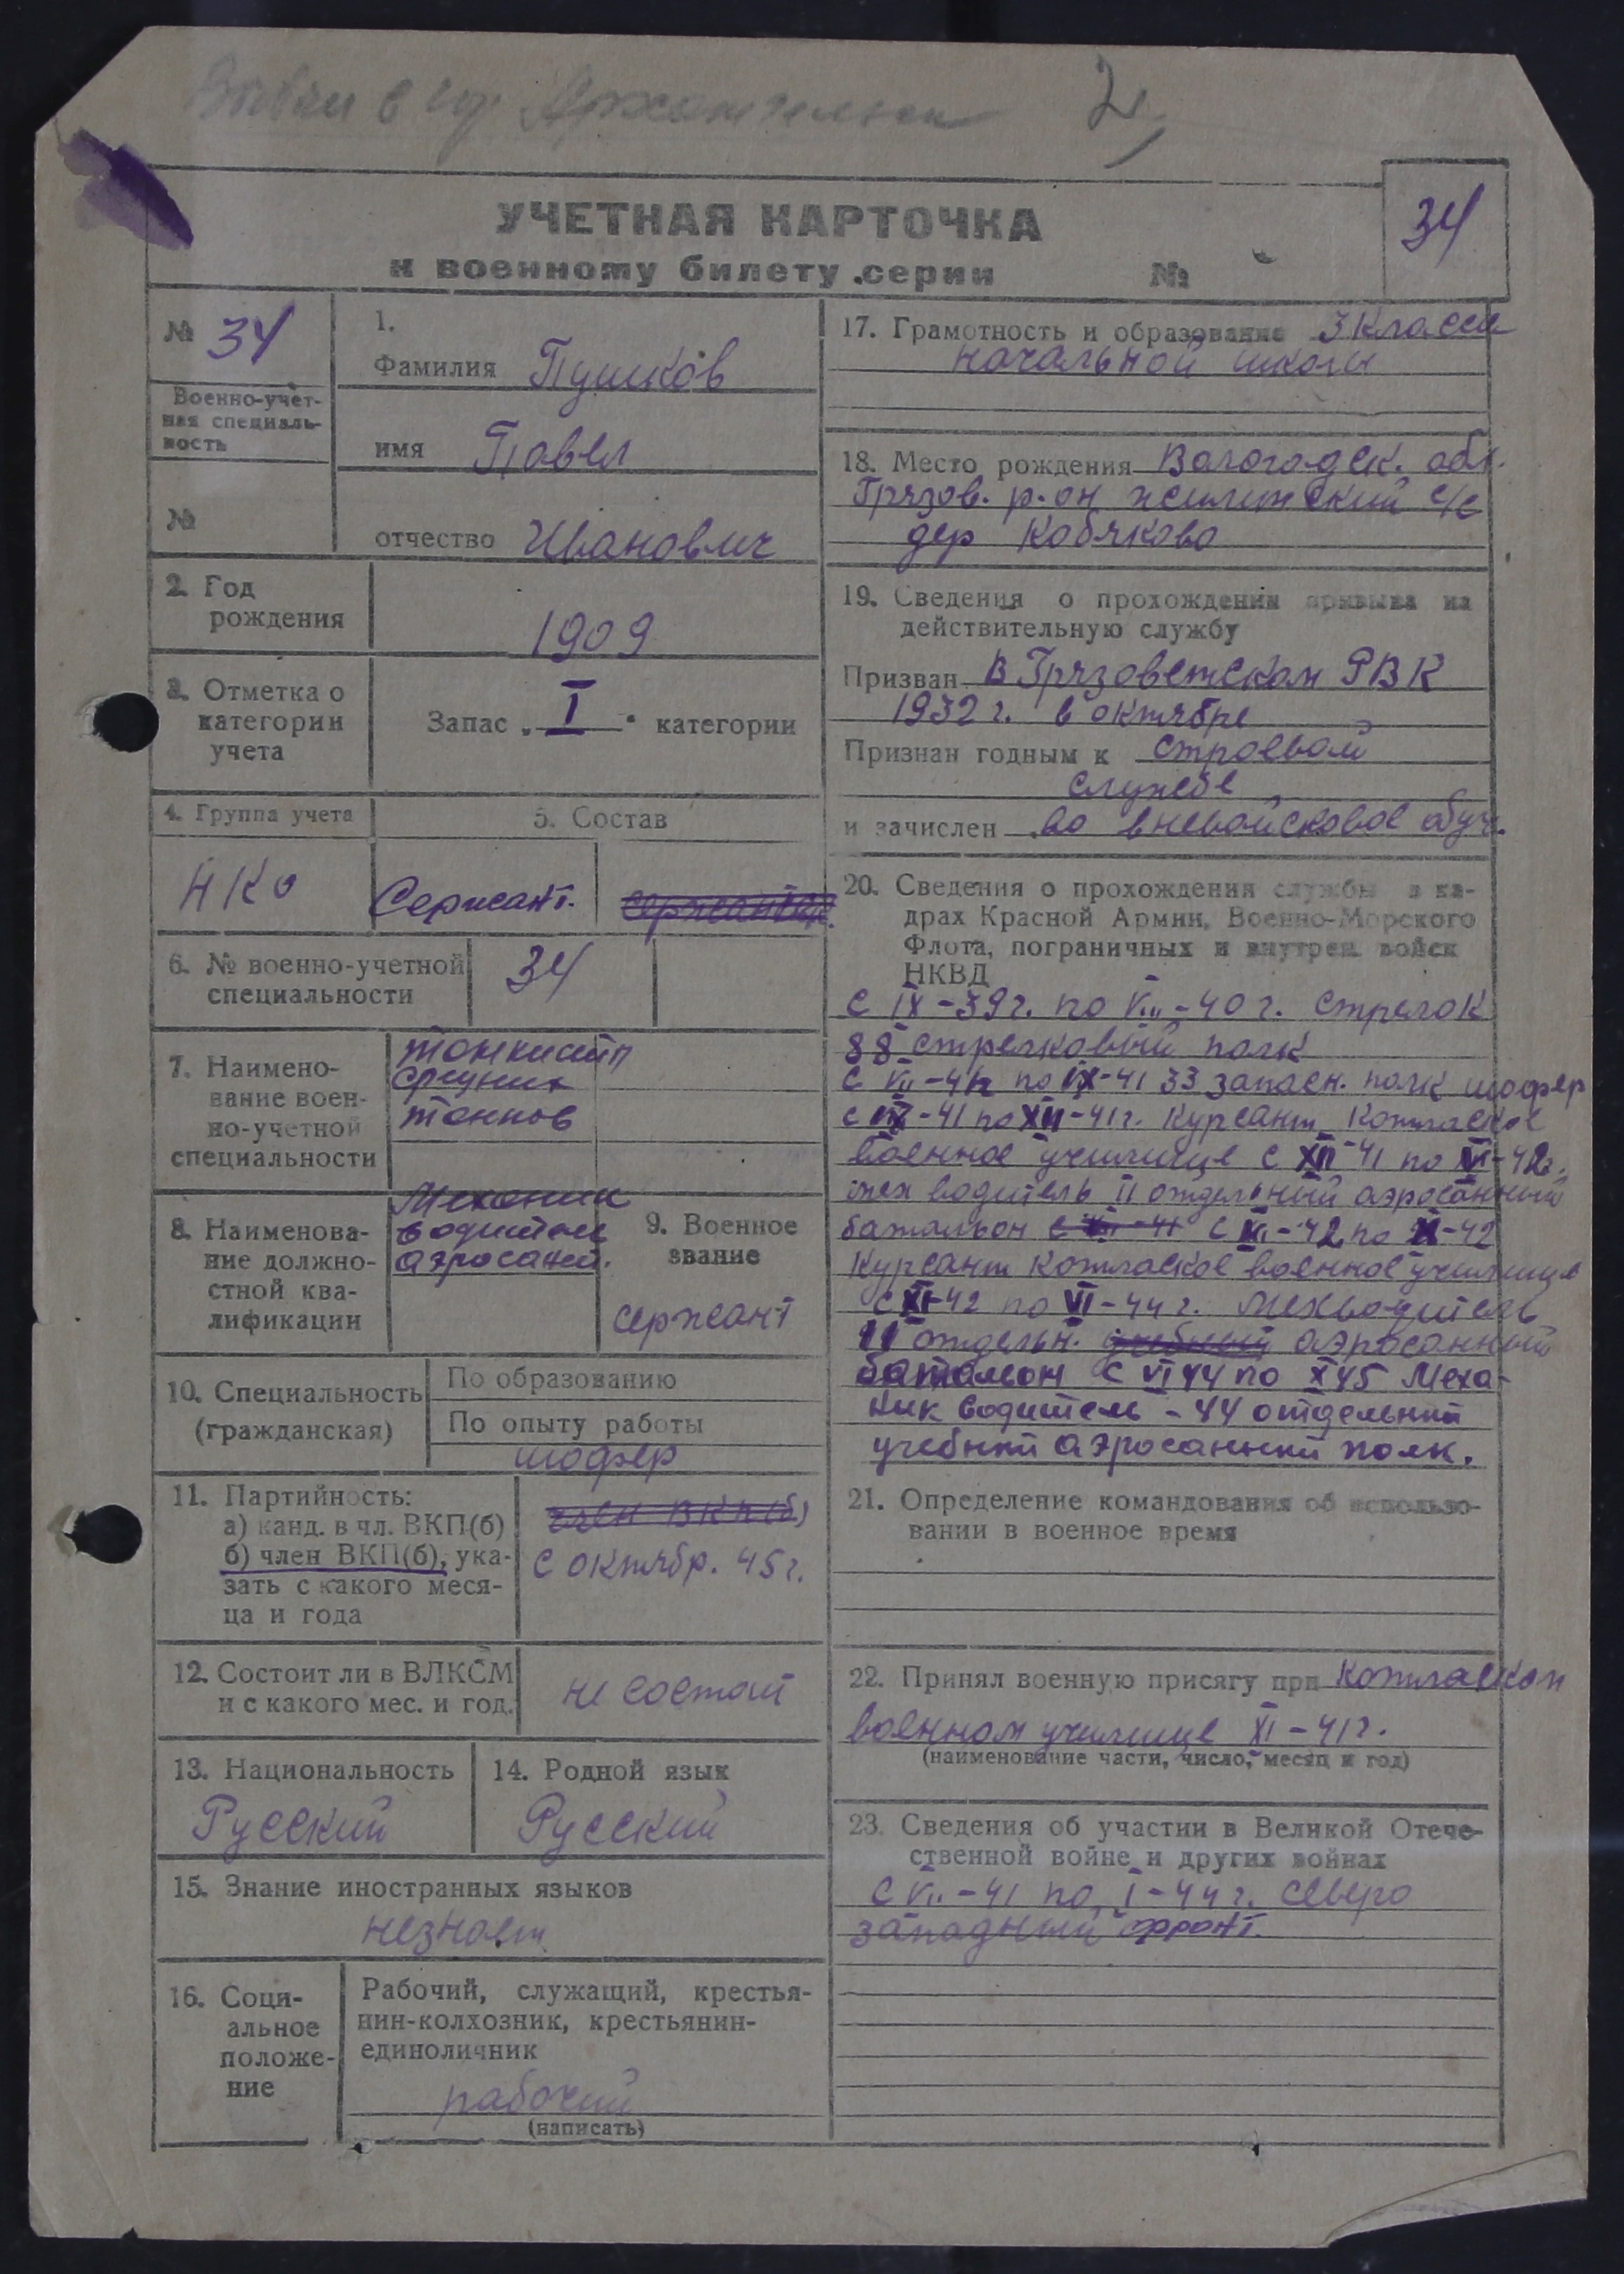 в гор Архангельск 2,
УЧЕТНАЯ КАРТОЧКА
к военному билету серии №
34
№ 34
Военно-учет-
ная специаль-
ность
№
1.
Фамилия Пушков
имя Павел
отчество Иванович
2. Год
рождения
1909
3. Отметка о
категории
учета
Запас „ I “ категории
4. Группа учета
5. Состав
НКО
Сержант.
6. № военно-учетной
специальности
34
7. Наимено-
вание воен-
но-учетной
специальности
средних
танков
8. Наименова-
ние должно-
стной ква-
лификации
Механик
водитель
аэросаней.
9. Военное
звание
сержант
10. Специальность
(гражданская)
По образованию
По опыту работы
шофер
11. Партийность:
а) канд. в чл. ВКП(б)
б) член ВКП(б), ука-
зать с какого меся-
ца и года
член ВКП(б)
с октябр. 45 г.
12. Состоит ли в ВЛКСМ
и с какого мес. и год.
не состоит
13. Национальность
Русский
14. Родной язык
Русский
15. Знание иностранных языков
незнает
16. Соци-
альное
положе-
ние
Рабочий, служащий, крестья-
нин-колхозник, крестьянин-
единоличник
рабочий
(написать)
17. Грамотность и образование 3 класса
начальной школы
18. Место рождения Вологодск. обл.
Грязов. р-он с/с
дер Кобяково
19. Сведения о прохождении призыва на
действительную службу
Призван в Грязоветском РВК
1932 г. в октябре
Признан годным к строевой
службе
и зачислен во вневойсковое обуч.
20. Сведения о прохождении службы в ка-
драх Красной Армии, Военно-Морского
Флота, пограничных и внутрен. войск
НКВД
с IX-39 г. по VIII-40 г. стрелок
88 стрелковый полк
с VII-41 г по IX-41 33 запасн. полк шофер
с IX-41 по XII-41 г. курсант Котлаское
военное училище с XII-41 по VI-42 г.
мех водитель II отдельный аэросанный
батальон с VII-42 по XI-42
курсант котлаское военное училище
с XI-42 по VI-44 г. мехводитель
11 отдельн. учебный аэросанный
батальон с VI 44 по X 45 Меха-
ник водитель - 44 отдельный
учебный аэросанный полк.
21. Определение командования об использо-
вании в военное время
22. Принял военную присягу при котласком
военном училище XI-41 г.
(наименование части, число, месяц и год)
23. Сведения об участии в Великой Отече-
ственной войне и других войнах
с VII-41 по I-44 г. северо
западный фронт.